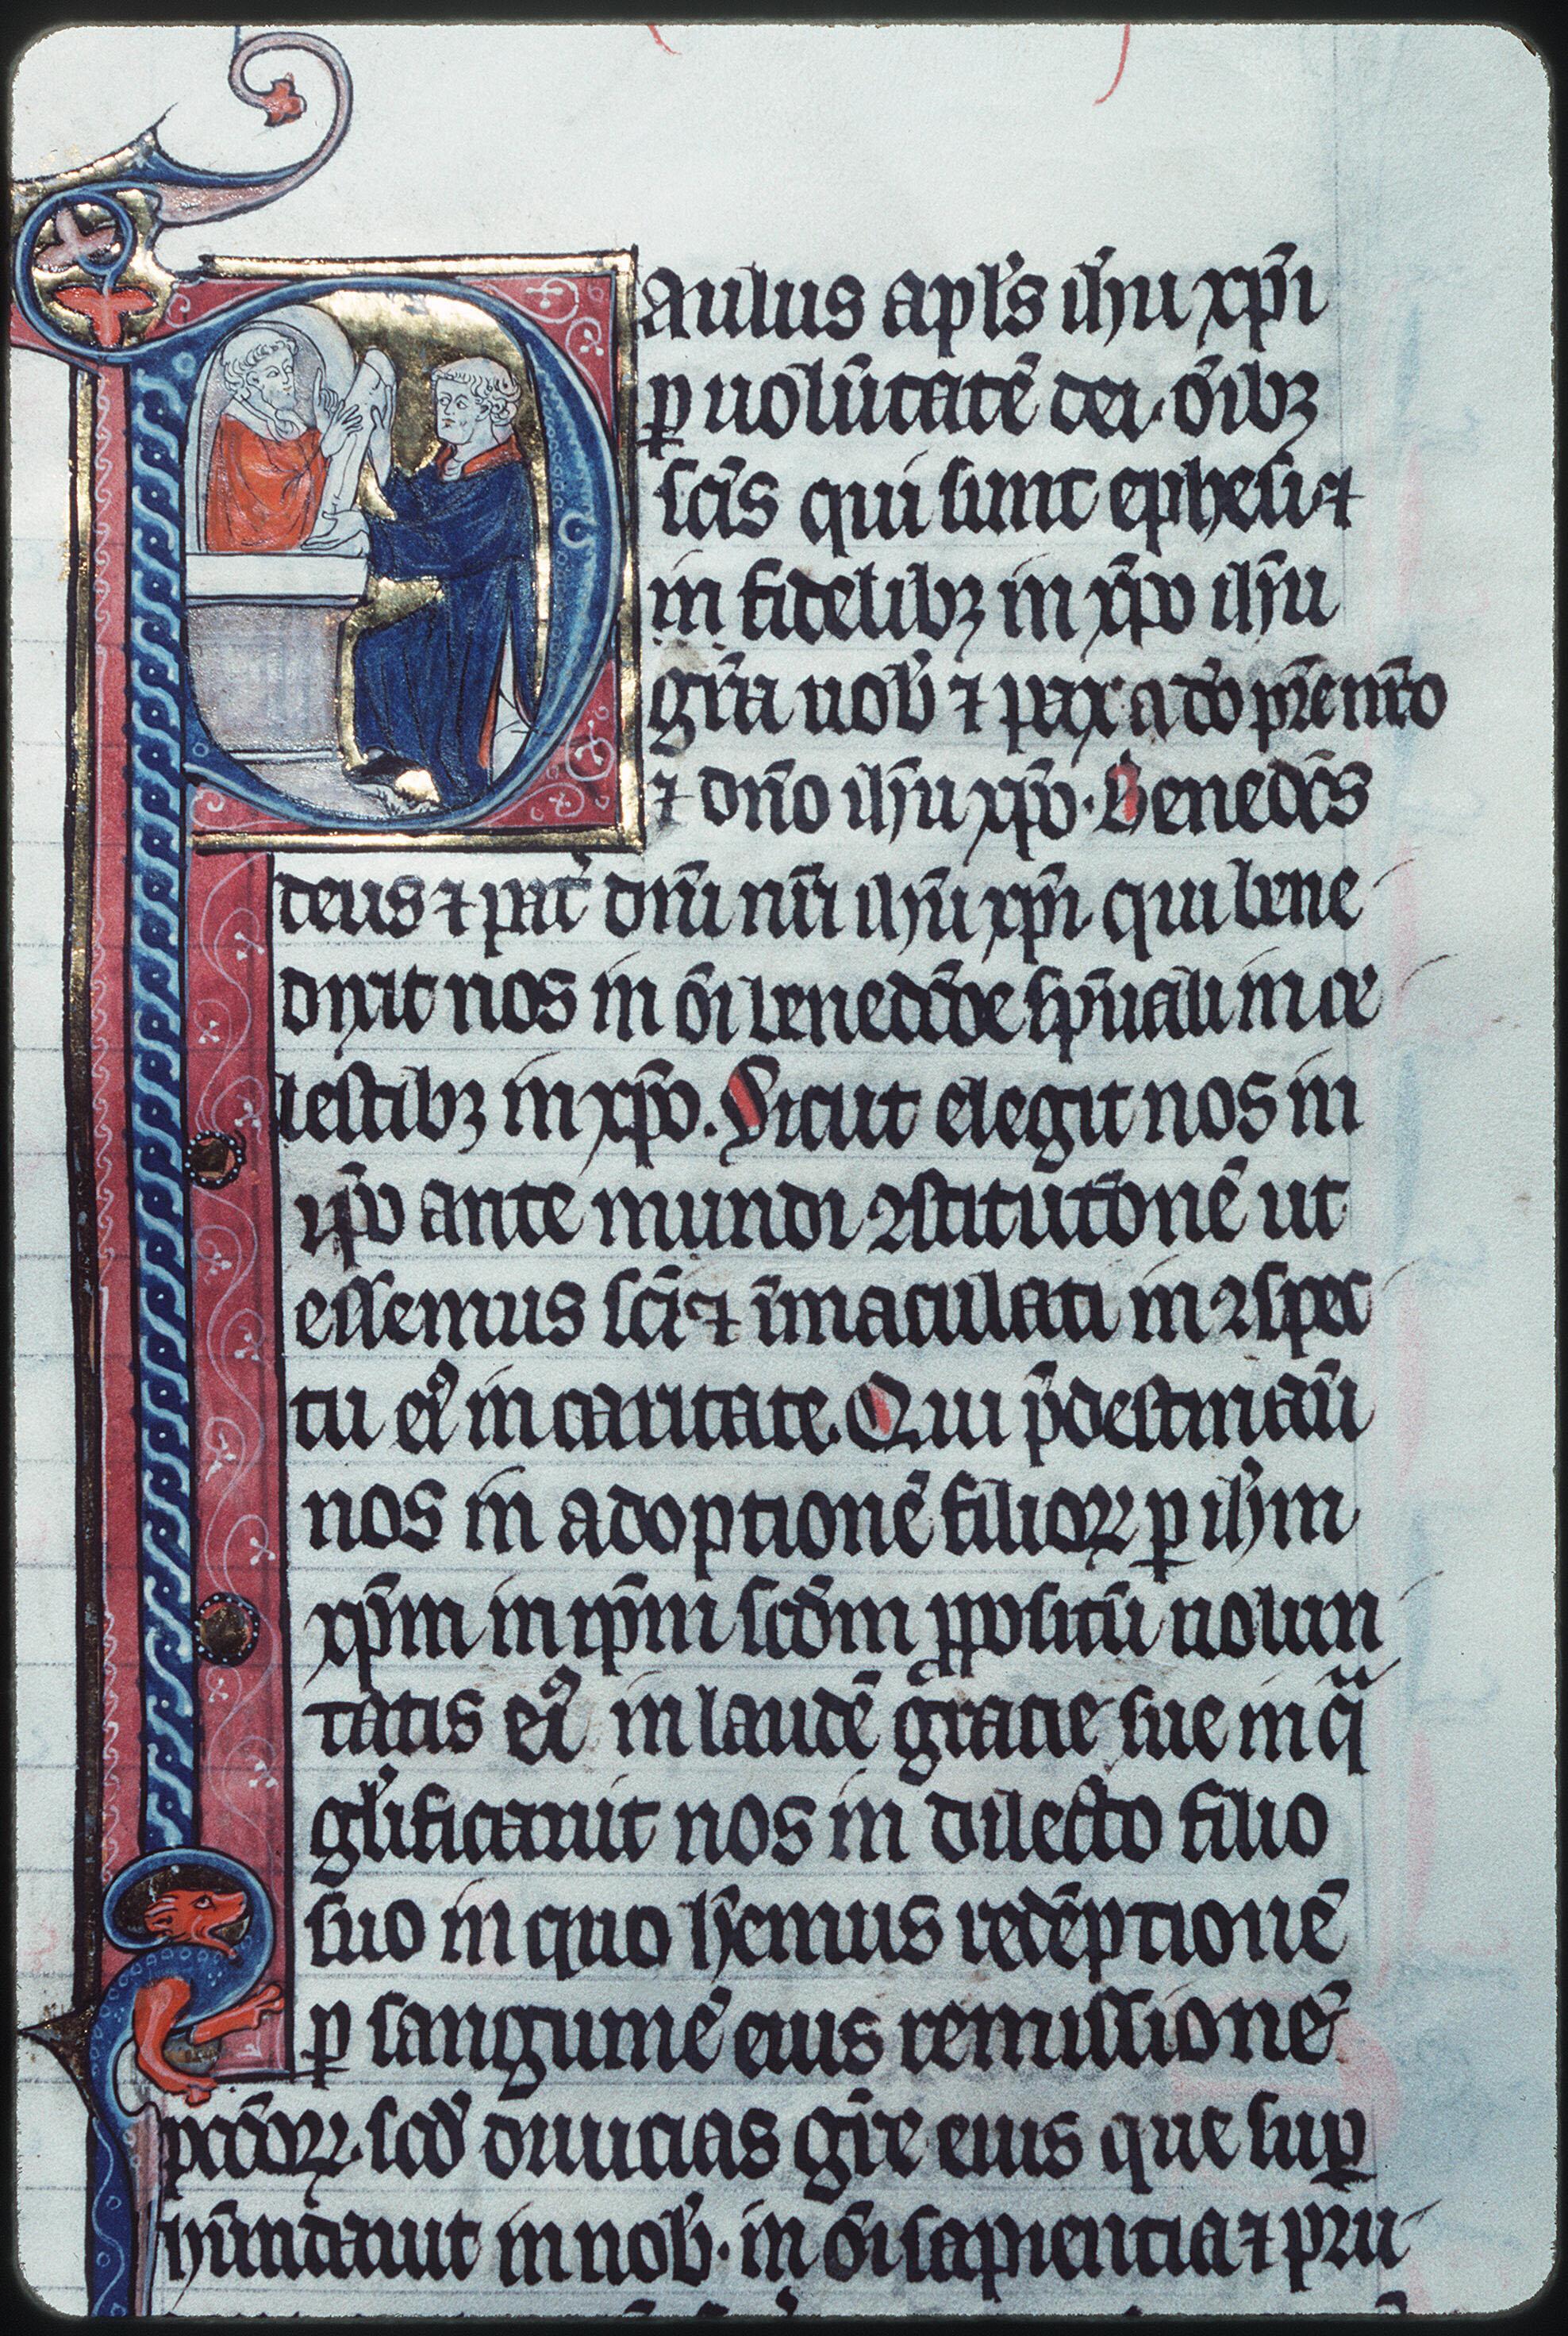 Paulus apl's ih'u xp̄i
ꝑ uolūtatē dei. o̅ib;
sc̄is qui sunt ephesi ⁊
in fidelib; in xp̄o ih̄u
gr̄a uob' ⁊ pax a do̅ pr̄e nr̄o
⁊ dn̄o ih̄u xp̄o. Benedc̄s
deus ⁊ pat' dn̄i nr̄i ih̄u xp̄i. qui bene
dixit nos in o̅i benedc̄o̅e sp̄uali in ce
lestib; in xp̄o. Sicut elegit nos in
ip̄o ante mundi ꝯstitutōnē ut
essemus sc̄i ⁊ īmaculati in ꝯspec
tu eiꝰ in caritate. Qui p̄destinau̅
nos in adoptionē filioꝝ ꝑ ih'm
xp̄m in ip̄m scd̄m ꝓpositū uolun
tatis eiꝰ in laudē gracie sue in qᵃ
gl'ificauit nos in dilecto filio
suo in quo h̄emus redēptionē
ꝑ sanguinē eius remissionē
pcc̄oꝝ. scd' diuicias gr̄e eius que suꝑ
hūndauit in nob'. in o̅i sapiencia ⁊ pru